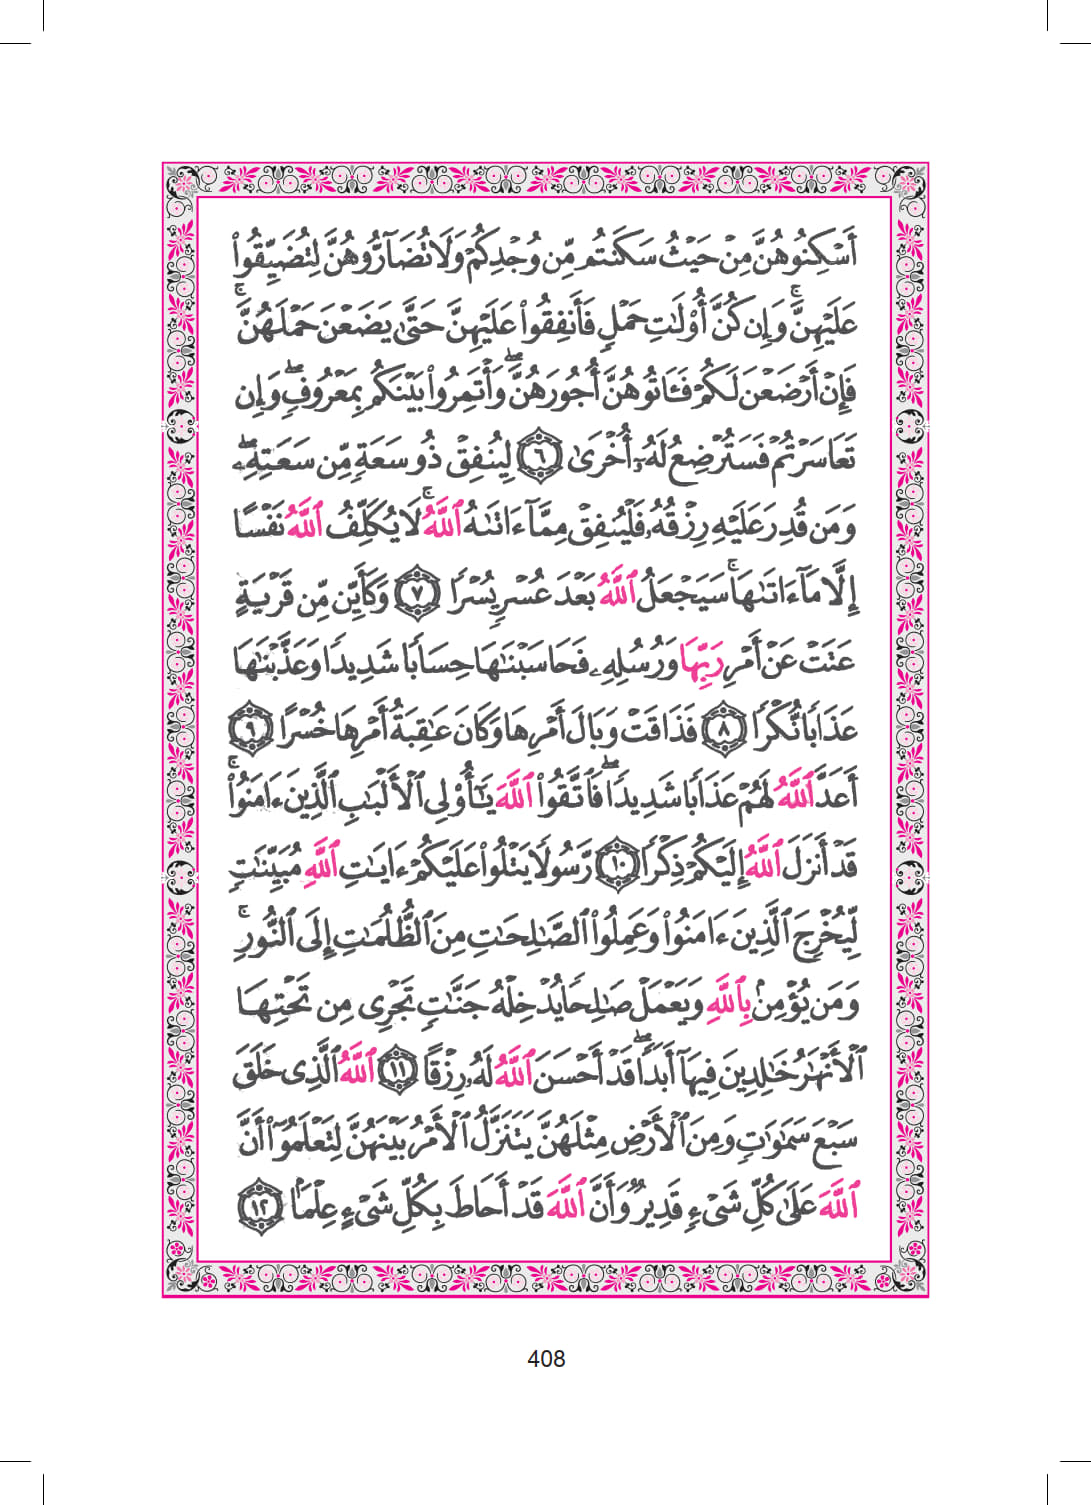 أَسْكِنُوهُنَّ مِنْ حَيْثُ سَكَنتُم مِّن وُجْدِكُمْ وَلَا تُضَآرُّوهُنَّ لِتُضَيِّقُوا۟
عَلَيْهِنَّ ۚ وَإِن كُنَّ أُو۟لَٰتِ حَمْلٍ فَأَنفِقُوا۟ عَلَيْهِنَّ حَتَّىٰ يَضَعْنَ حَمْلَهُنَّ ۚ
فَإِنْ أَرْضَعْنَ لَكُمْ فَـَٔاتُوهُنَّ أُجُورَهُنَّ ۖ وَأْتَمِرُوا۟ بَيْنَكُم بِمَعْرُوفٍ ۖ وَإِن
تَعَاسَرْتُمْ فَسَتُرْضِعُ لَهُۥٓ أُخْرَىٰ ٦ لِيُنفِقْ ذُو سَعَةٍ مِّن سَعَتِهِۦ ۖ
وَمَن قُدِرَ عَلَيْهِ رِزْقُهُۥ فَلْيُنفِقْ مِمَّآ ءَاتَىٰهُ ٱللَّهُ ۚ لَا يُكَلِّفُ ٱللَّهُ نَفْسًا
إِلَّا مَآ ءَاتَىٰهَا ۚ سَيَجْعَلُ ٱللَّهُ بَعْدَ عُسْرٍ يُسْرًا ٧ وَكَأَيِّن مِّن قَرْيَةٍ
عَتَتْ عَنْ أَمْرِ رَبِّهَا وَرُسُلِهِۦ فَحَاسَبْنَٰهَا حِسَابًا شَدِيدًا وَعَذَّبْنَٰهَا
عَذَابًا نُّكْرًا ٨ فَذَاقَتْ وَبَالَ أَمْرِهَا وَكَانَ عَٰقِبَةُ أَمْرِهَا خُسْرًا ٩
أَعَدَّ ٱللَّهُ لَهُمْ عَذَابًا شَدِيدًا ۖ فَٱتَّقُوا۟ ٱللَّهَ يَٰٓأُو۟لِى ٱلْأَلْبَٰبِ ٱلَّذِينَ ءَامَنُوا۟ ۚ
قَدْ أَنزَلَ ٱللَّهُ إِلَيْكُمْ ذِكْرًا ١٠ رَّسُولًا يَتْلُوا۟ عَلَيْكُمْ ءَايَٰتِ ٱللَّهِ مُبَيِّنَٰتٍ
لِّيُخْرِجَ ٱلَّذِينَ ءَامَنُوا۟ وَعَمِلُوا۟ ٱلصَّٰلِحَٰتِ مِنَ ٱلظُّلُمَٰتِ إِلَى ٱلنُّورِ ۚ
وَمَن يُؤْمِنۢ بِٱللَّهِ وَيَعْمَلْ صَٰلِحًا يُدْخِلْهُ جَنَّٰتٍ تَجْرِى مِن تَحْتِهَا
ٱلْأَنْهَٰرُ خَٰلِدِينَ فِيهَآ أَبَدًا ۖ قَدْ أَحْسَنَ ٱللَّهُ لَهُۥ رِزْقًا ١١ ٱللَّهُ ٱلَّذِى خَلَقَ
سَبْعَ سَمَٰوَٰتٍ وَمِنَ ٱلْأَرْضِ مِثْلَهُنَّ يَتَنَزَّلُ ٱلْأَمْرُ بَيْنَهُنَّ لِتَعْلَمُوٓا۟ أَنَّ
ٱللَّهَ عَلَىٰ كُلِّ شَىْءٍ قَدِيرٌ وَأَنَّ ٱللَّهَ قَدْ أَحَاطَ بِكُلِّ شَىْءٍ عِلْمًۢا ١٢
408